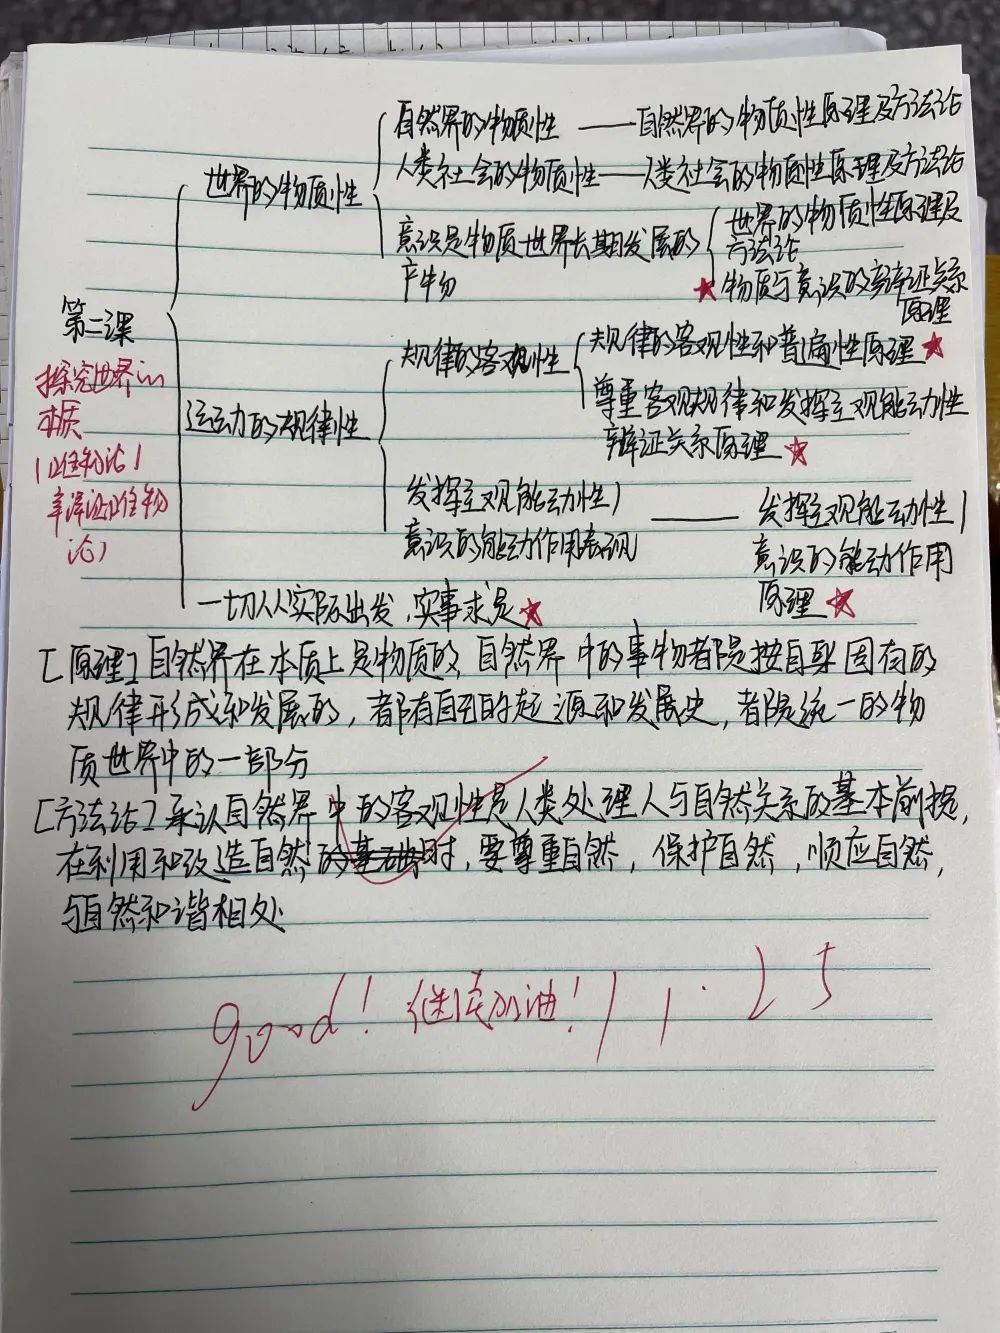 自然界的物质性 —— 自然界的物质性原理及方法论
世界的物质性
人类社会的物质性——人类社会的物质性原理及方法论
意识是物质世界长期发展的
产物
世界的物质性原理及
方法论
★物质与意识的辩证关系
原理
第二课
探究世界的
本质
(唯物论)
辩证唯物
论)
规律的客观性
规律的客观性和普遍性原理★
尊重客观规律和发挥主观能动性
辩证关系原理★
运动的规律性
发挥主观能动性/
意识的能动作用表现
——
发挥主观能动性/
意识的能动作用
原理★
一切从实际出发,实事求是★
[原理]自然界在本质上是物质的,自然界中的事物都是按自身固有的
规律形成和发展的,都有自己的起源和发展史,都是统一的物
质世界中的一部分
[方法论]承认自然界中的客观性是人类处理人与自然关系的基本前提,
在利用和改造自然时,要尊重自然,保护自然,顺应自然,
与自然和谐相处
good!继续加油!11.25